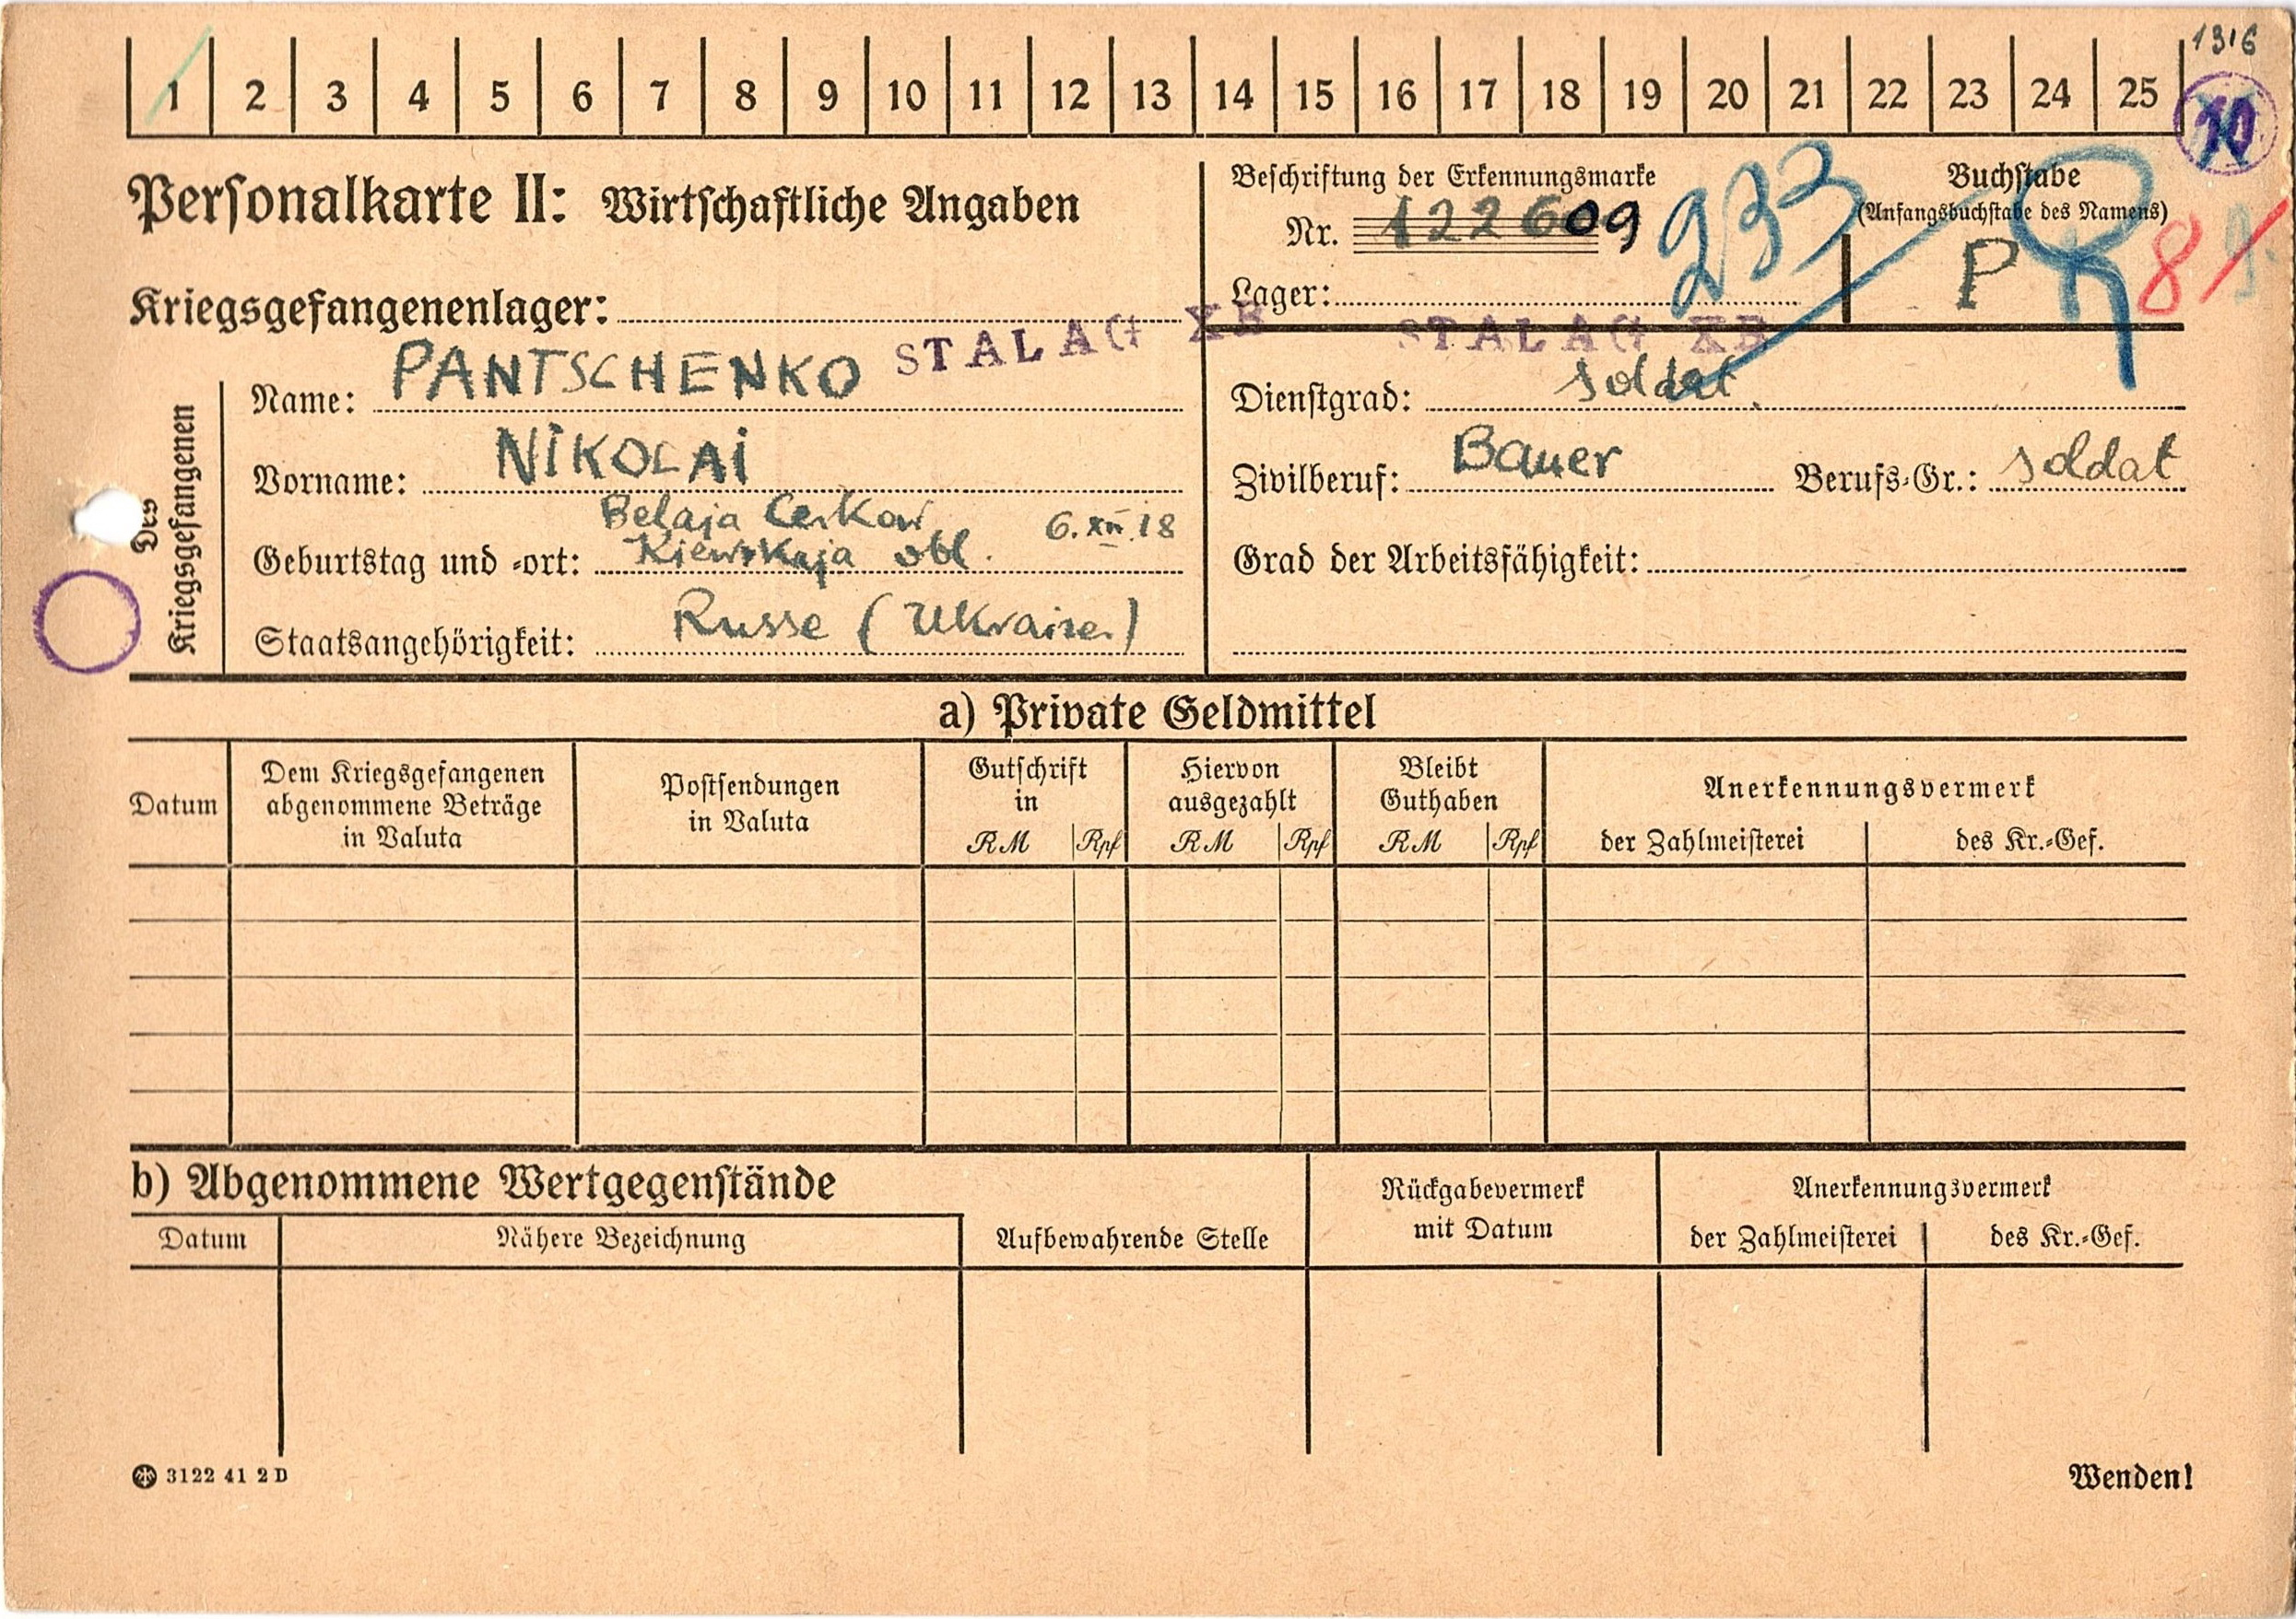 1316
1 2 3 4 5 6 7 8 9 10 11 12 13 14 15 16 17 18 19 20 21 22 23 24 25
Personalkarte II: Wirtschaftliche Angaben
Beschriftung der Erkennungsmarke
Nr. 122609
233
Lager:
STALAG XB
Buchstabe
(Anfangsbuchstabe des Namens)
P
8
Kriegsgefangenenlager:
STALAG XB
Des Kriegsgefangenen
Name: PANTSCHENKO
Vorname: NIKOLAI
Geburtstag und -ort: Belaja Cerkow 6.XII.18
Kiewskaja obl.
Staatsangehörigkeit: Russe (Ukrainer)
Dienstgrad: soldat.
Zivilberuf: Bauer Berufs-Gr.: soldat
Grad der Arbeitsfähigkeit:
a) Private Geldmittel
Datum
Dem Kriegsgefangenen
abgenommene Beträge
in Valuta
Postsendungen
in Valuta
Gutschrift
in
RM Rpf
Hiervon
ausgezahlt
RM Rpf
Bleibt
Guthaben
RM Rpf
Anerkennungsvermerk
der Zahlmeisterei des Kr.-Gef.
b) Abgenommene Wertgegenstände
Datum Nähere Bezeichnung Aufbewahrende Stelle
Rückgabevermerk
mit Datum
Anerkennungsvermerk
der Zahlmeisterei des Kr.-Gef.
3122 41 2 D
Wenden!